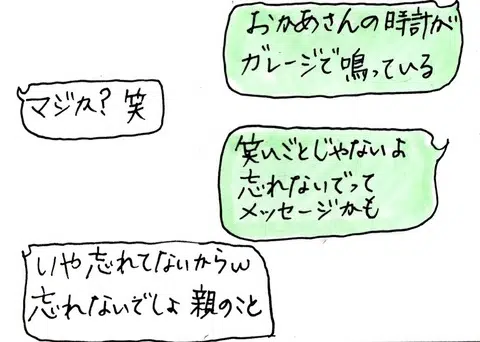 おかあさんの時計が
ガレージで鳴っている
マジか？笑
笑いごとじゃないよ
忘れないでって
メッセージかも
いや忘れてないからw
忘れないでしょ 親のこと